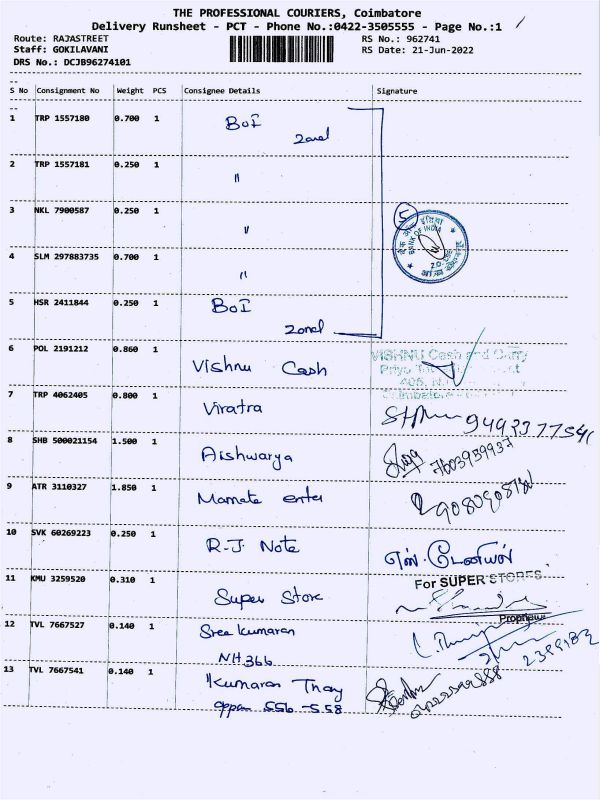 THE PROFESSIONAL COURIERS, Coimbatore
Delivery Runsheet - PCT - Phone No.:0422-3505555 - Page No.:1
Route: RAJASTREET RS No.: 962741
Staff: GOKILAVANI RS Date: 21-Jun-2022
DRS No.: DCJB96274101
S No Consignment No Weight PCS Consignee Details Signature
1 TRP 1557180 0.700 1 BOI
zonal
2 TRP 1557181 0.250 1 "
3 NKL 7900587 0.250 1 "
5
BANK OF INDIA
4 SLM 297883735 0.700 1 "
5 HSR 2411844 0.250 1 BOI
zonal
6 POL 2191212 0.860 1 Vishnu Cash VISHNU Cash and Carry
7 TRP 4062405 0.800 1 Viratra
8 SHB 500021154 1.500 1 Aishwarya 7603939937
9 ATR 3110327 1.850 1 Mamata enter
10 SVK 60269223 0.250 1 R.J. Note எஸ். டேனியல்
11 KMU 3259520 0.310 1 Super Store For SUPER STORES
Proprietor
12 TVL 7667527 0.140 1 Sree Kumaran
NH 366 2399183
13 TVL 7667541 0.140 1 "Kumaran Thay
oppan 556 - 558